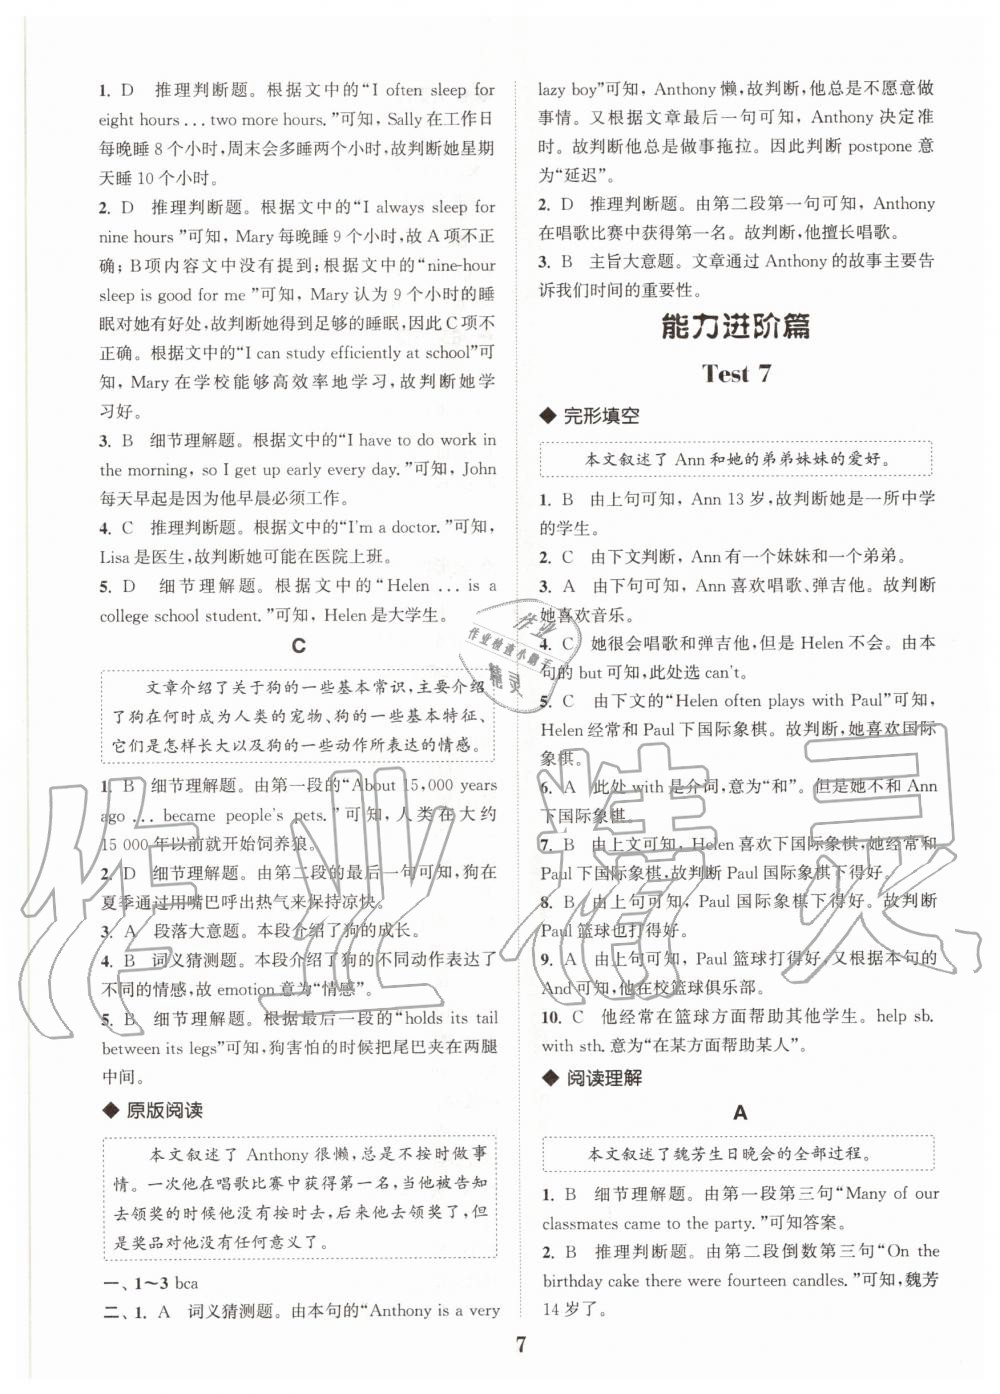 1. D　推理判断题。根据文中的“I often sleep for
eight hours . . . two more hours. ”可知，Sally 在工作日
每晚睡 8 个小时，周末会多睡两个小时，故判断她星期
天睡 10 个小时。
2. D　推理判断题。根据文中的“I always sleep for
nine hours ”可知，Mary 每晚睡 9 个小时，故 A 项不正
确；B 项内容文中没有提到；根据文中的“nine-hour
sleep is good for me ”可知，Mary 认为 9 个小时的睡
眠对她有好处，故判断她得到足够的睡眠，因此 C 项不
正确。根据文中的“I can study efficiently at school”可
知，Mary 在学校能够高效率地学习，故判断她学
习好。
3. B　细节理解题。根据文中的“I have to do work in
the morning, so I get up early every day. ”可知，John
每天早起是因为他早晨必须工作。
4. C　推理判断题。根据文中的“I'm a doctor. ”可知，
Lisa 是医生，故判断她可能在医院上班。
5. D　细节理解题。根据文中的“Helen . . . is a
college school student. ”可知，Helen 是大学生。
C
文章介绍了关于狗的一些基本常识，主要介绍
了狗在何时成为人类的宠物、狗的一些基本特征、
它们是怎样长大以及狗的一些动作所表达的情感。
1. B　细节理解题。由第一段的“About 15,000 years
ago . . . became people's pets. ”可知，人类在大约
15 000 年以前就开始饲养狼。
2. D　细节理解题。由第二段的最后一句可知，狗在
夏季通过用嘴巴呼出热气来保持凉快。
3. A　段落大意题。本段介绍了狗的成长。
4. B　词义猜测题。本段介绍了狗的不同动作表达了
不同的情感，故 emotion 意为“情感”。
5. B　细节理解题。根据最后一段的“holds its tail
between its legs”可知，狗害怕的时候把尾巴夹在两腿
中间。
◆ 原版阅读
本文叙述了 Anthony 很懒，总是不按时做事
情。一次他在唱歌比赛中获得第一名，当他被告知
去领奖的时候他没有按时去，后来他去领奖了，但
是奖品对他没有任何意义了。
一、1～3 bca
二、1. A　词义猜测题。由本句的“Anthony is a very
lazy boy”可知，Anthony 懒，故判断，他总是不愿意做
事情。又根据文章最后一句可知，Anthony 决定准
时。故判断他总是做事拖拉。因此判断 postpone 意
为“延迟”。
2. D　推理判断题。由第二段第一句可知，Anthony
在唱歌比赛中获得第一名。故判断，他擅长唱歌。
3. B　主旨大意题。文章通过 Anthony 的故事主要告
诉我们时间的重要性。
能力进阶篇
Test 7
◆ 完形填空
本文叙述了 Ann 和她的弟弟妹妹的爱好。
1. B　由上句可知，Ann 13 岁，故判断她是一所中学
的学生。
2. C　由下文判断，Ann 有一个妹妹和一个弟弟。
3. A　由下句可知，Ann 喜欢唱歌、弹吉他。故判断
她喜欢音乐。
4. C　她很会唱歌和弹吉他，但是 Helen 不会。由本
句的 but 可知，此处选 can't。
5. C　由下文的“Helen often plays with Paul”可知，
Helen 经常和 Paul 下国际象棋。故判断，她喜欢国际
象棋。
6. A　此处 with 是介词，意为“和”。但是她不和 Ann
下国际象棋。
7. B　由上文可知，Helen 喜欢下国际象棋，她经常和
Paul 下国际象棋，故判断 Paul 国际象棋下得好。
8. B　由上句可知，Paul 国际象棋下得好。故判断
Paul 篮球也打得好。
9. A　由上句可知，Paul 篮球打得好，又根据本句的
And 可知，他在校篮球俱乐部。
10. C　他经常在篮球方面帮助其他学生。help sb.
with sth. 意为“在某方面帮助某人”。
◆ 阅读理解
A
本文叙述了魏芳生日晚会的全部过程。
1. B　细节理解题。由第一段第三句“Many of our
classmates came to the party. ”可知答案。
2. B　推理判断题。由第二段倒数第三句“On the
birthday cake there were fourteen candles. ”可知，魏芳
14 岁了。
7
作业
作业检查小助手
精灵
作业精灵